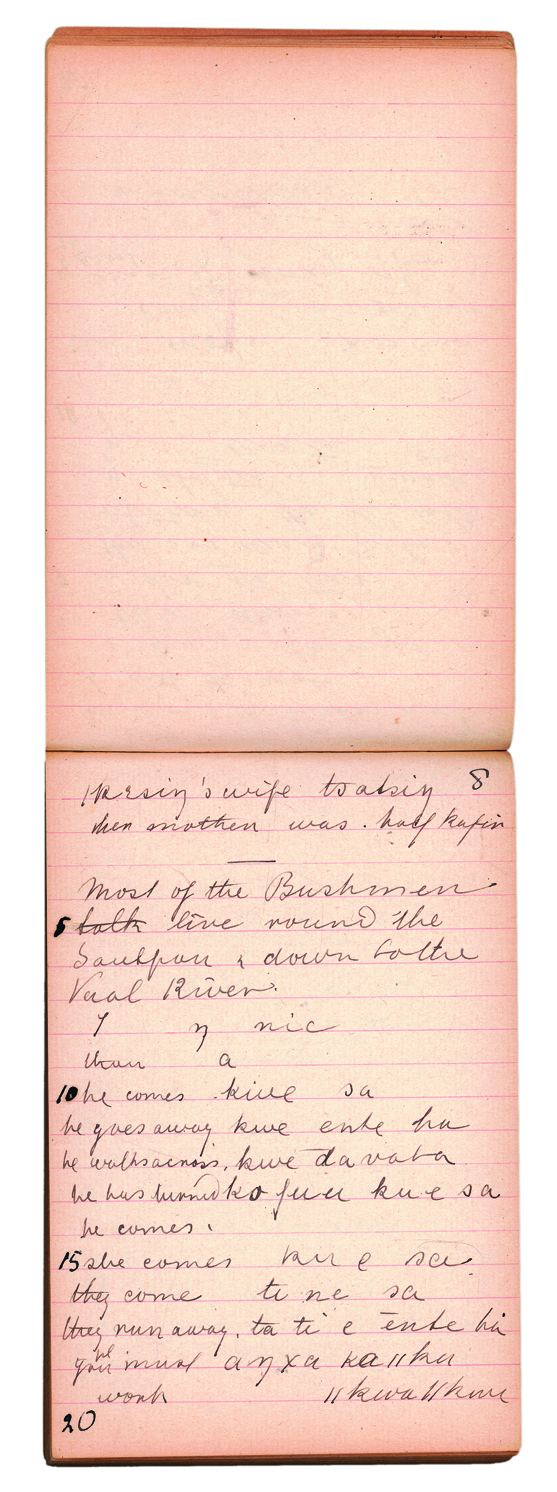 wife tsatsiŋ 8
her mother was half kafir
Most of the Bushmen
5 talk live round the
Saultpan & down to the
Vaal River.
I ŋ nic
thou a
10 he comes kwe sa
he goes away kwe ente ha
he walks across, kwe da vata
he has turned ko kue sa
he comes.
15 she comes kue sa
they come ti ne sa
they run away. ta ti e ēnte ha
must aŋxa ka ǁku
work ǁkwaǁkwe
20